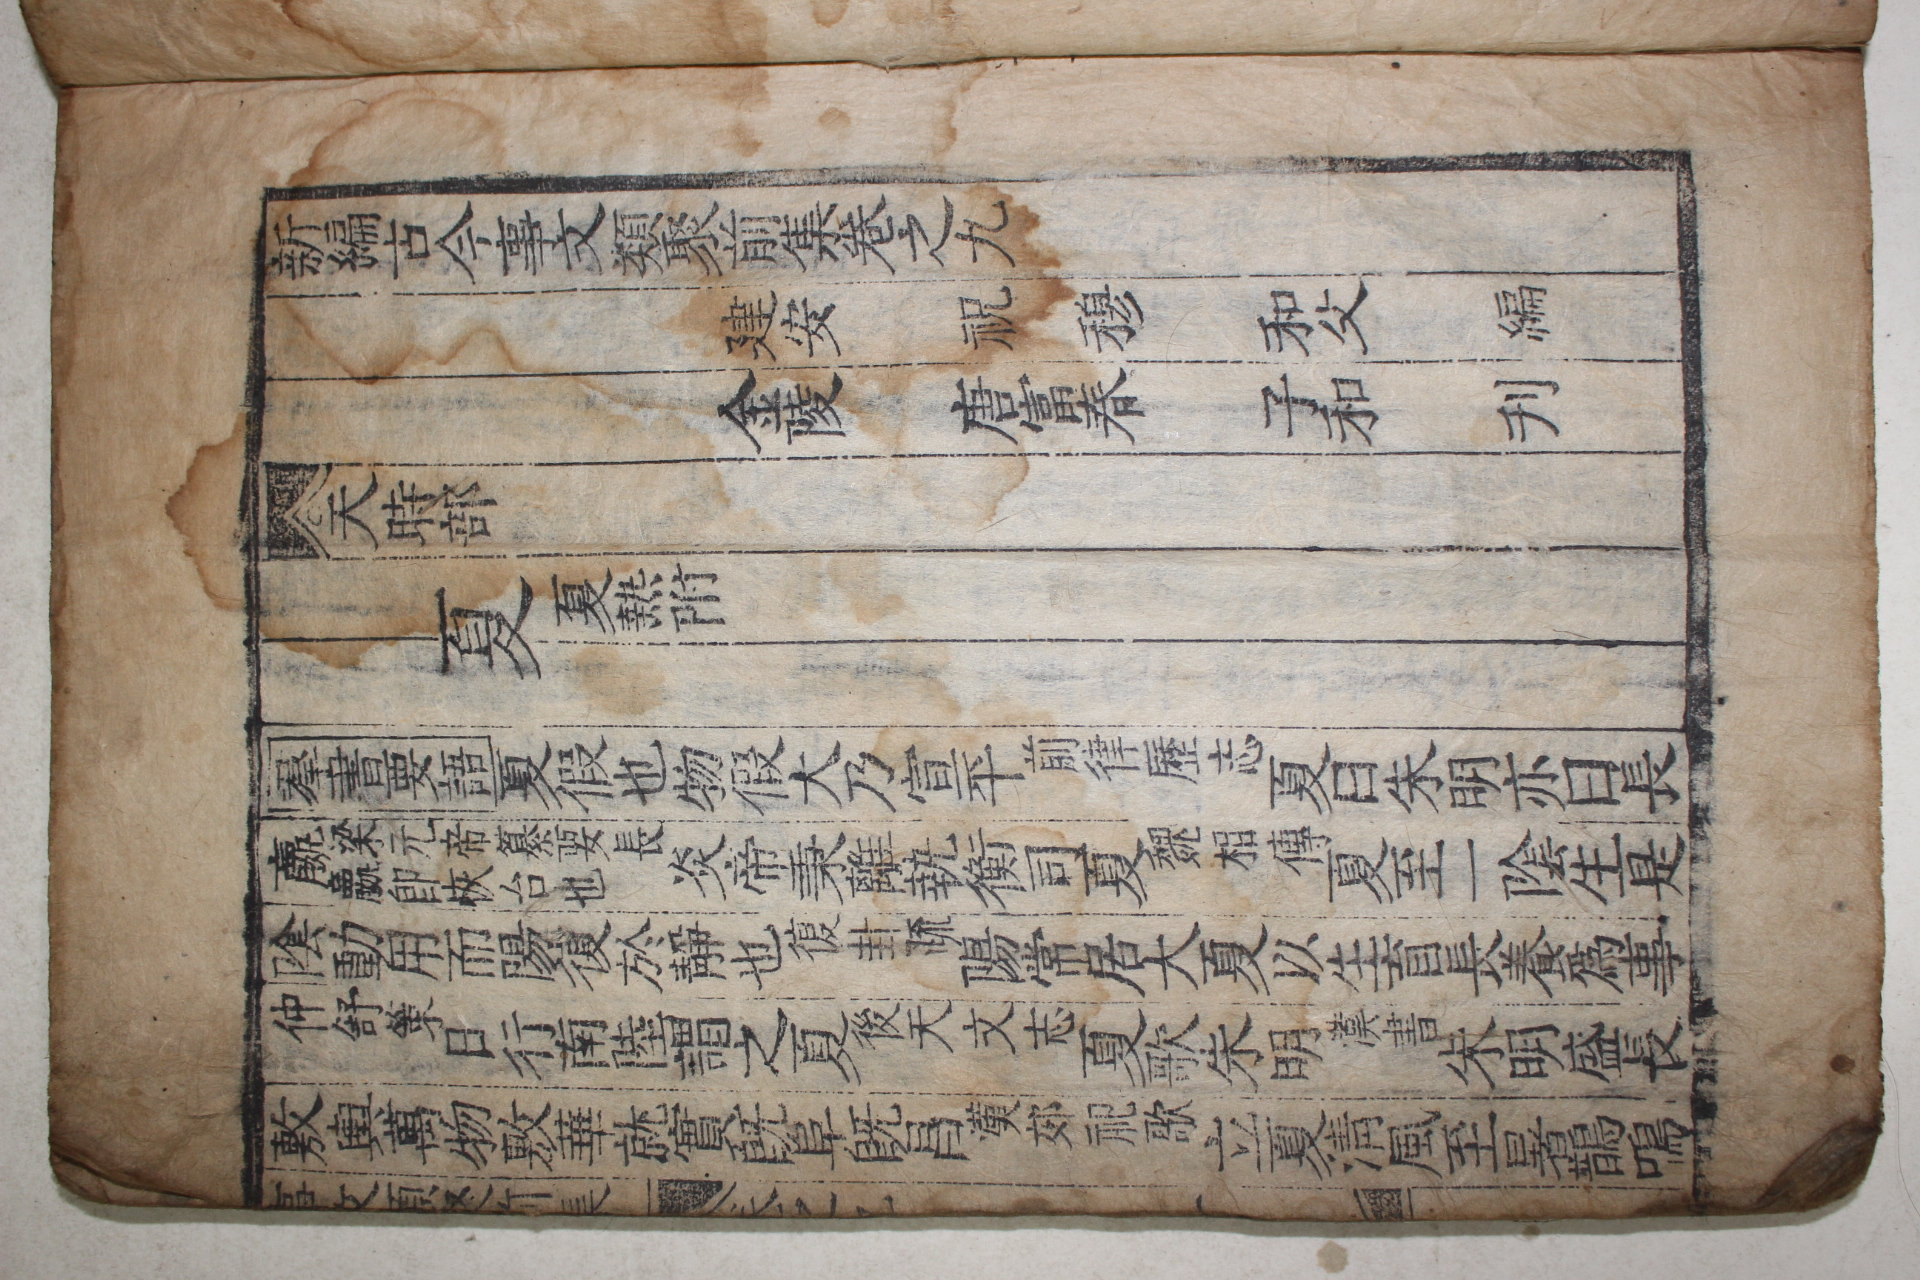 新編古今事文類聚前集卷之九
建安 祝 穆 和父 編
金陵 唐富春 子和 刋
天時部
夏 夏熱附
羣書要語 夏假也物假大乃宣平 前律歷志 夏日朱明亦曰長
嬴 梁元帝纂要長嬴即恢台也 炎帝秉離執衡司夏 魏相傳 夏至一陰生是
陰動用而陽復於靜也 復卦疏 陽常居大夏以生育長養爲事
仲舒策 日行南陸謂之夏 後天文志 夏歌朱明 漢書 朱明盛長
敷與萬物敷華就實既阜既昌 漢郊祀歌 立夏清風至暑鵲鳴
事文類聚前集 卷之九